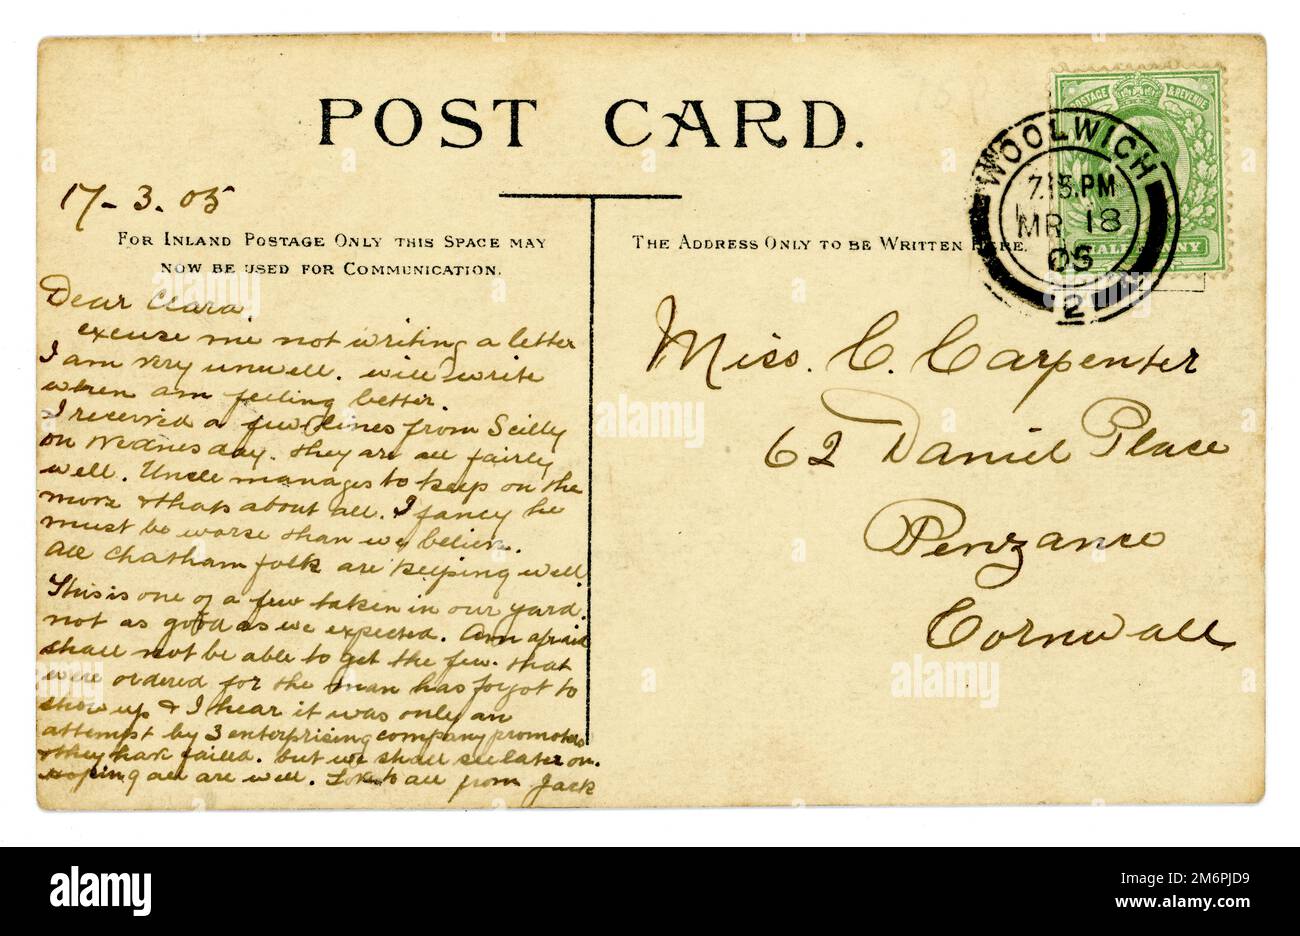 POST CARD.
17-3.05
FOR INLAND POSTAGE ONLY THIS SPACE MAY
NOW BE USED FOR COMMUNICATION.
Dear Clara,
excuse me not writing a letter
I am very unwell. will write
when am feeling better.
I received a few lines from Scilly
on Wednesday. they are all fairly
well. Uncle manages to keep on the
move & thats about all. I fancy he
must be worse than we believe.
All Chatham folk are keeping well
This is one of a few taken in our yard.
not as good as we expected. Am afraid
shall not be able to get the few that
were ordered for the man has forgot to
show up & I hear it was only an
attempt by 3 enterprising company promoters
& they have failed. but we shall see later on.
Hoping all are well. Love to all from Jack
THE ADDRESS ONLY TO BE WRITTEN HERE.
Miss. C. Carpenter
62 Daniel Place
Penzance
Cornwall
POSTAGE & REVENUE
HALFPENNY
WOOLWICH
7.15.PM
MR 18
05
2
alamy
Image ID: 2M6PJD9
www.alamy.com